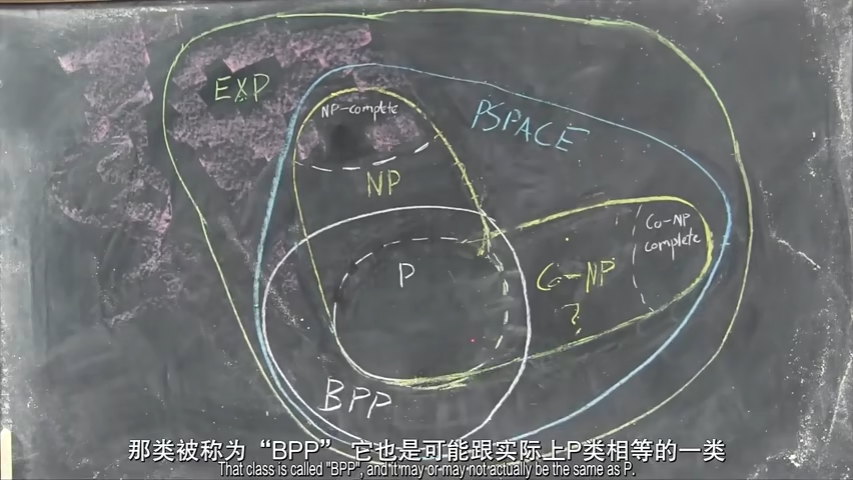 EXP
NP-complete
PSPACE
NP
Co-NP
complete
P
Co-NP
?
BPP
那类被称为“BPP”,它也是可能跟实际上P类相等的一类
That class is called "BPP", and it may or may not actually be the same as P.